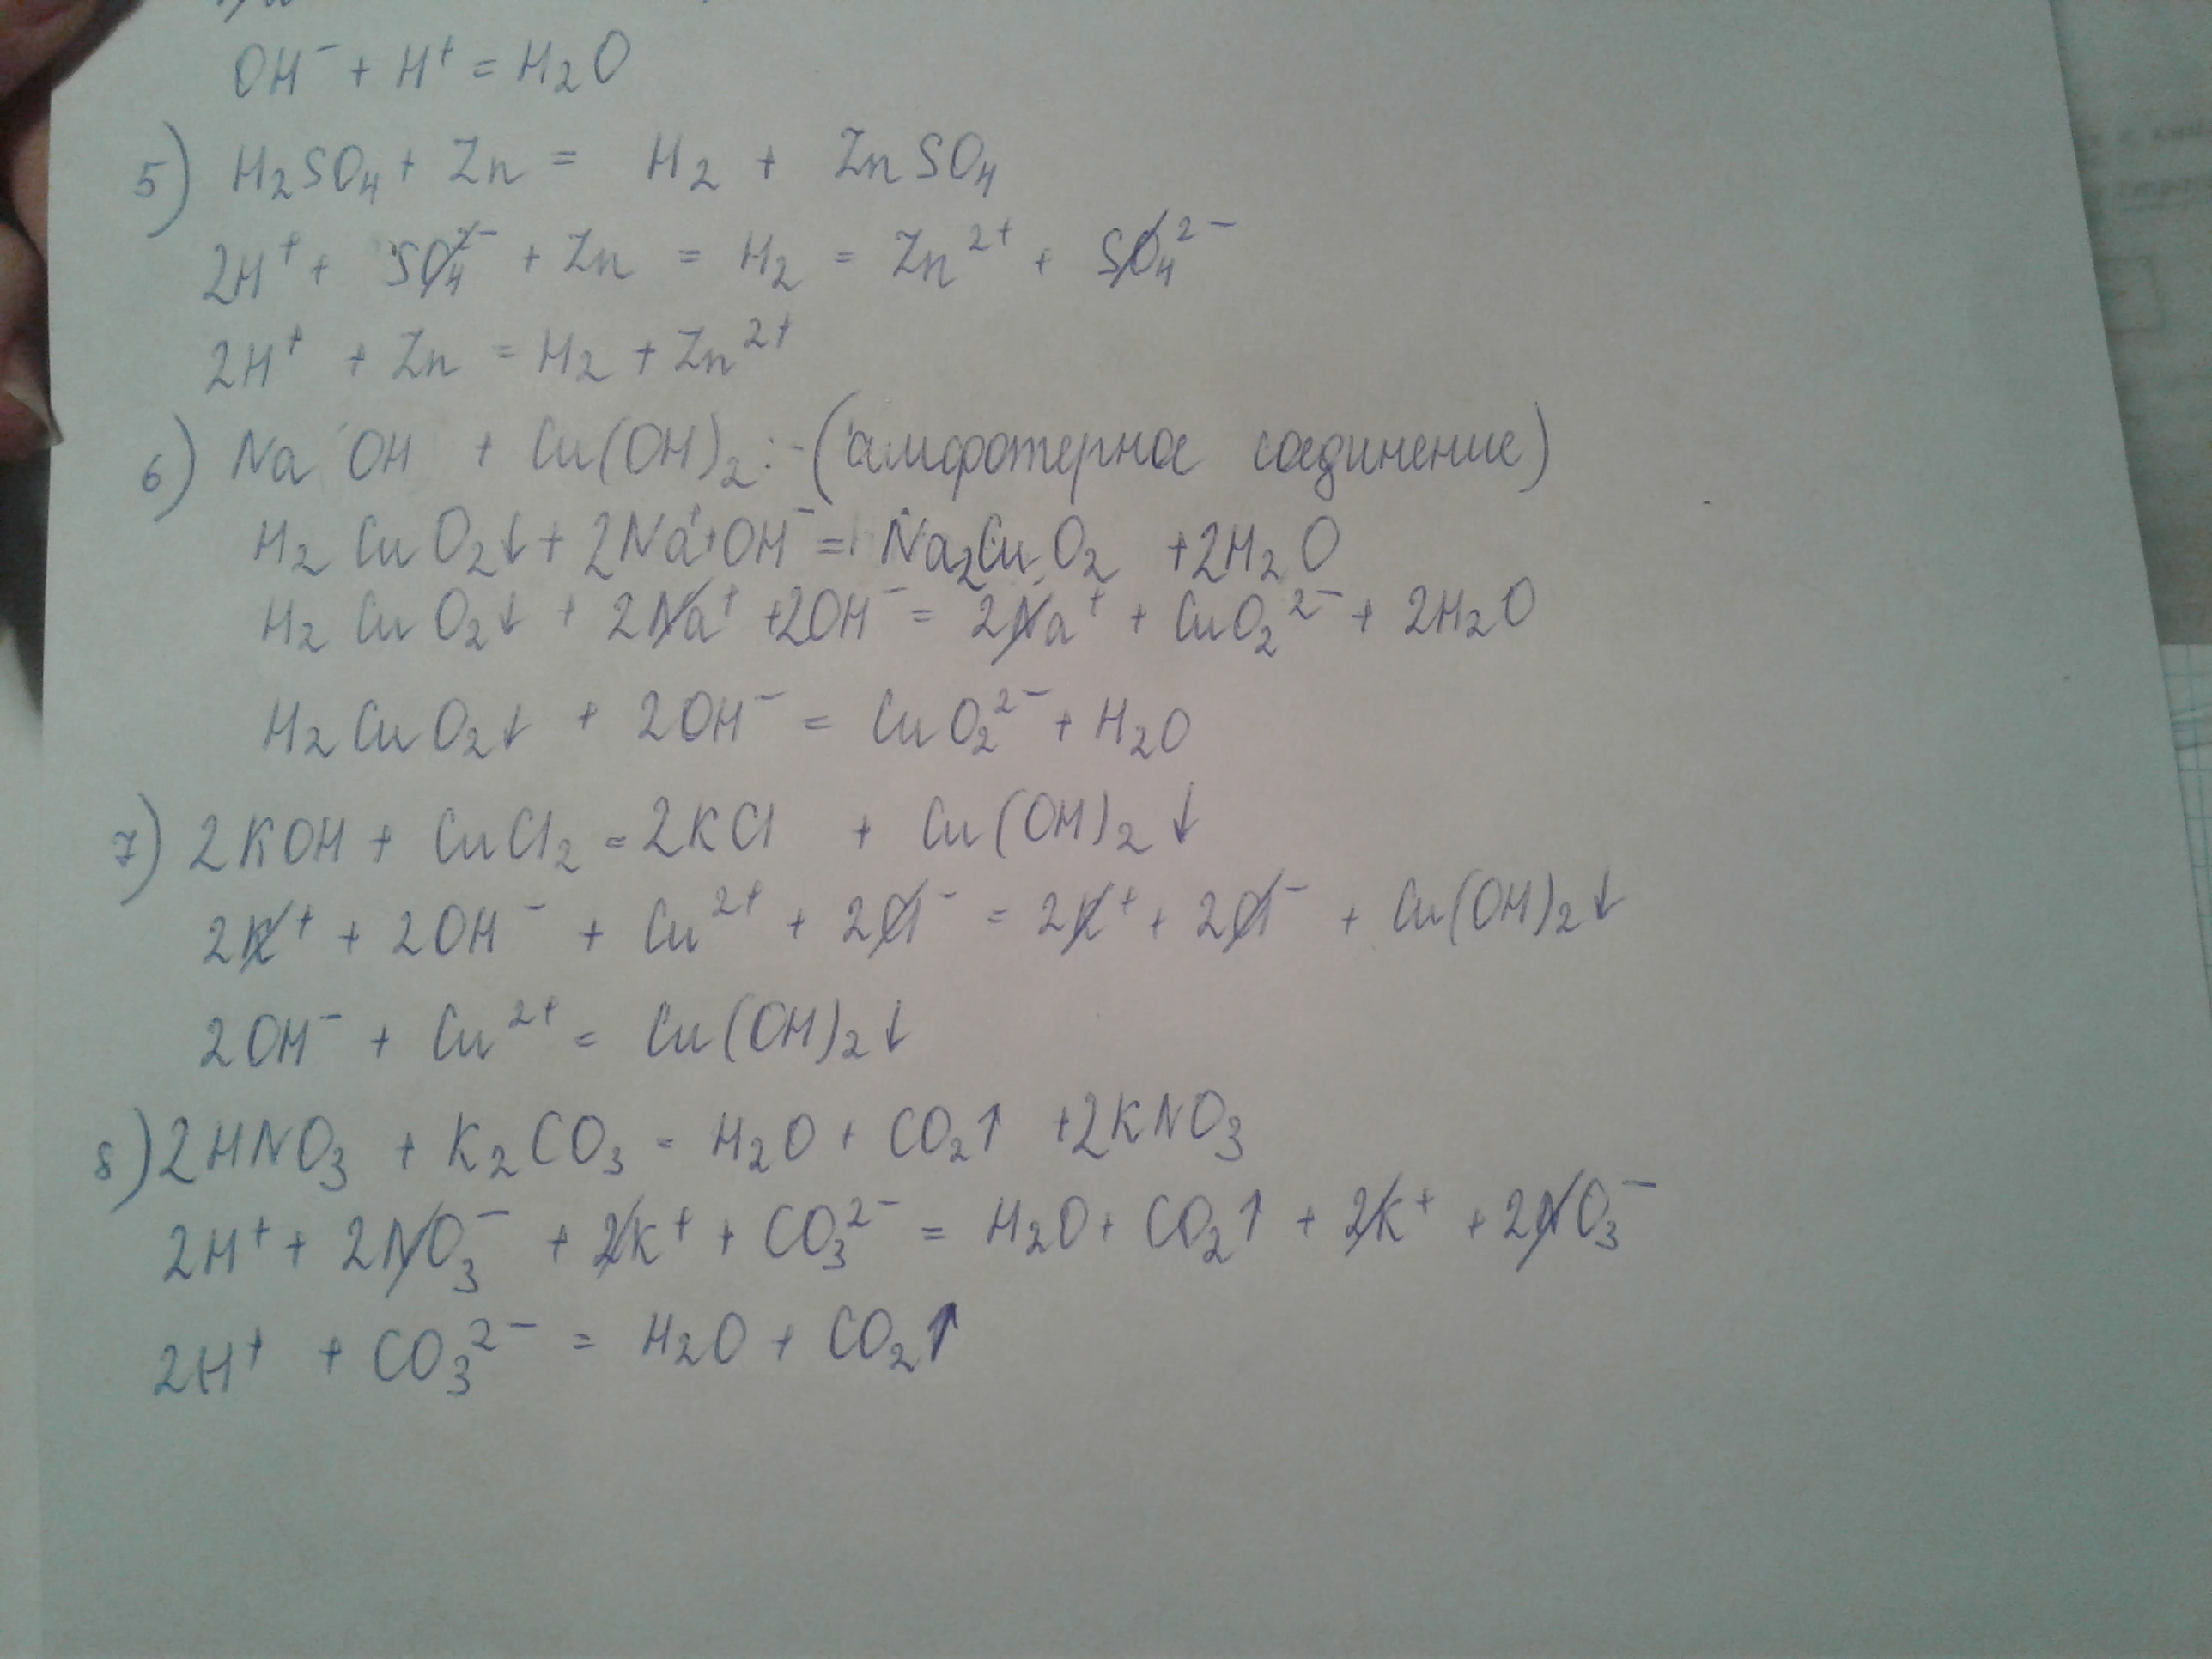 OH⁻ + H⁺ = H₂O
5) H₂SO₄ + Zn = H₂ + ZnSO₄
2H⁺ + SO₄²⁻ + Zn = H₂ = Zn²⁺ + SO₄²⁻
2H⁺ + Zn = H₂ + Zn²⁺
6) NaOH + Cu(OH)₂ :- (амфотерное соединение)
H₂CuO₂↓ + 2Na⁺+OH⁻ = Na₂CuO₂ + 2H₂O
H₂CuO₂↓ + 2Na⁺ + 2OH⁻ = 2Na⁺ + CuO₂²⁻ + 2H₂O
H₂CuO₂↓ + 2OH⁻ = CuO₂²⁻ + H₂O
7) 2KOH + CuCl₂ = 2KCl + Cu(OH)₂↓
2K⁺ + 2OH⁻ + Cu²⁺ + 2Cl⁻ = 2K⁺ + 2Cl⁻ + Cu(OH)₂↓
2OH⁻ + Cu²⁺ = Cu(OH)₂↓
8) 2HNO₃ + K₂CO₃ = H₂O + CO₂↑ + 2KNO₃
2H⁺ + 2NO₃⁻ + 2K⁺ + CO₃²⁻ = H₂O + CO₂↑ + 2K⁺ + 2NO₃⁻
2H⁺ + CO₃²⁻ = H₂O + CO₂↑